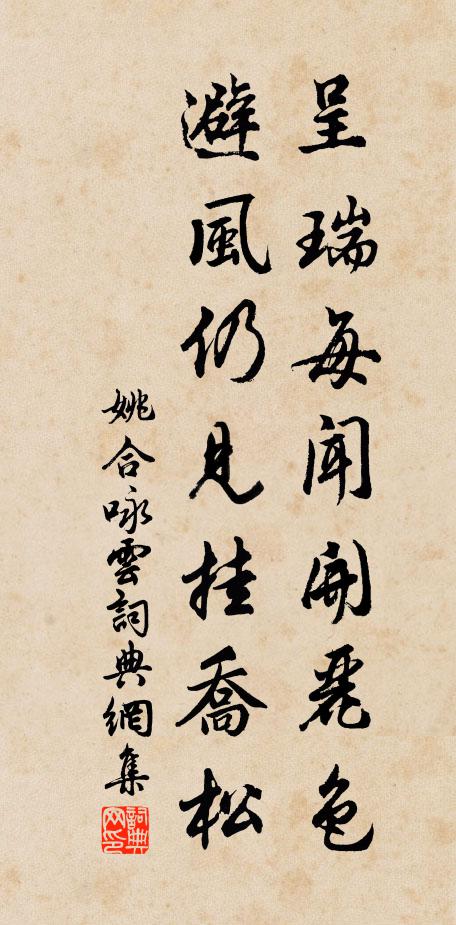 呈瑞每聞開麗色
避風仍見挂喬松
姚合咏雲詞典網集
詞典網印